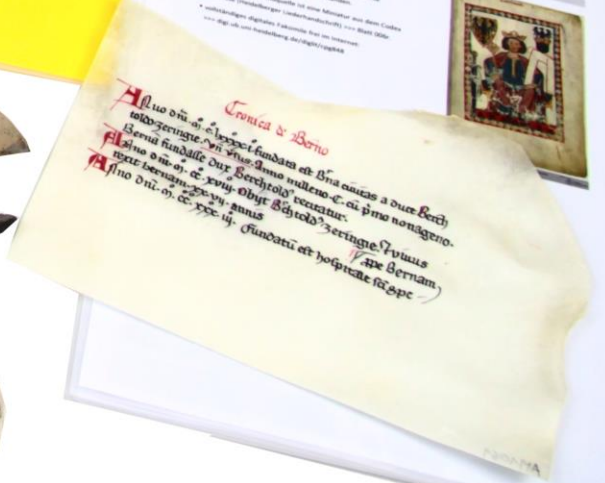 quelle ist eine Miniatur aus dem Codex
(Heidelberger Liederhandschrift) >>> Blatt 006r
• vollständiges digitales Faksimile frei im Internet:
>>> digi.ub.uni-heidelberg.de/diglit/cpg848
Cronica de Berno
Anno dnī. m. c. lxxxxi. fundata est Bna ciuitas a duce Berch
toldo zeringie. Anno milleno. C. cū pmo nonageno.
Bernā fundasse dux Berchtold recitatur.
Anno dnī. m. cc. xviij. obijt Bchtold zeringie.
rexit bernam. xx. vij. annis
ppe Bernam
Anno dnī. m. cc. xxx. iij. fundatū est hospitale